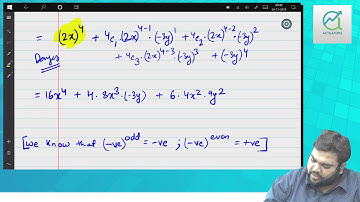 = (2x)⁴ + 4c₁(2x)⁴⁻¹·(-3y)¹ + 4c₂(2x)⁴⁻²·(-3y)²
+ 4c₃·(2x)⁴⁻³·(-3y)³ + (-3y)⁴
= 16x⁴ + 4·8x³·(-3y) + 6·4x²·9y²
[We know that (-ve)ᵒᵈᵈ = -ve ; (-ve)ᵉᵛᵉⁿ = +ve]